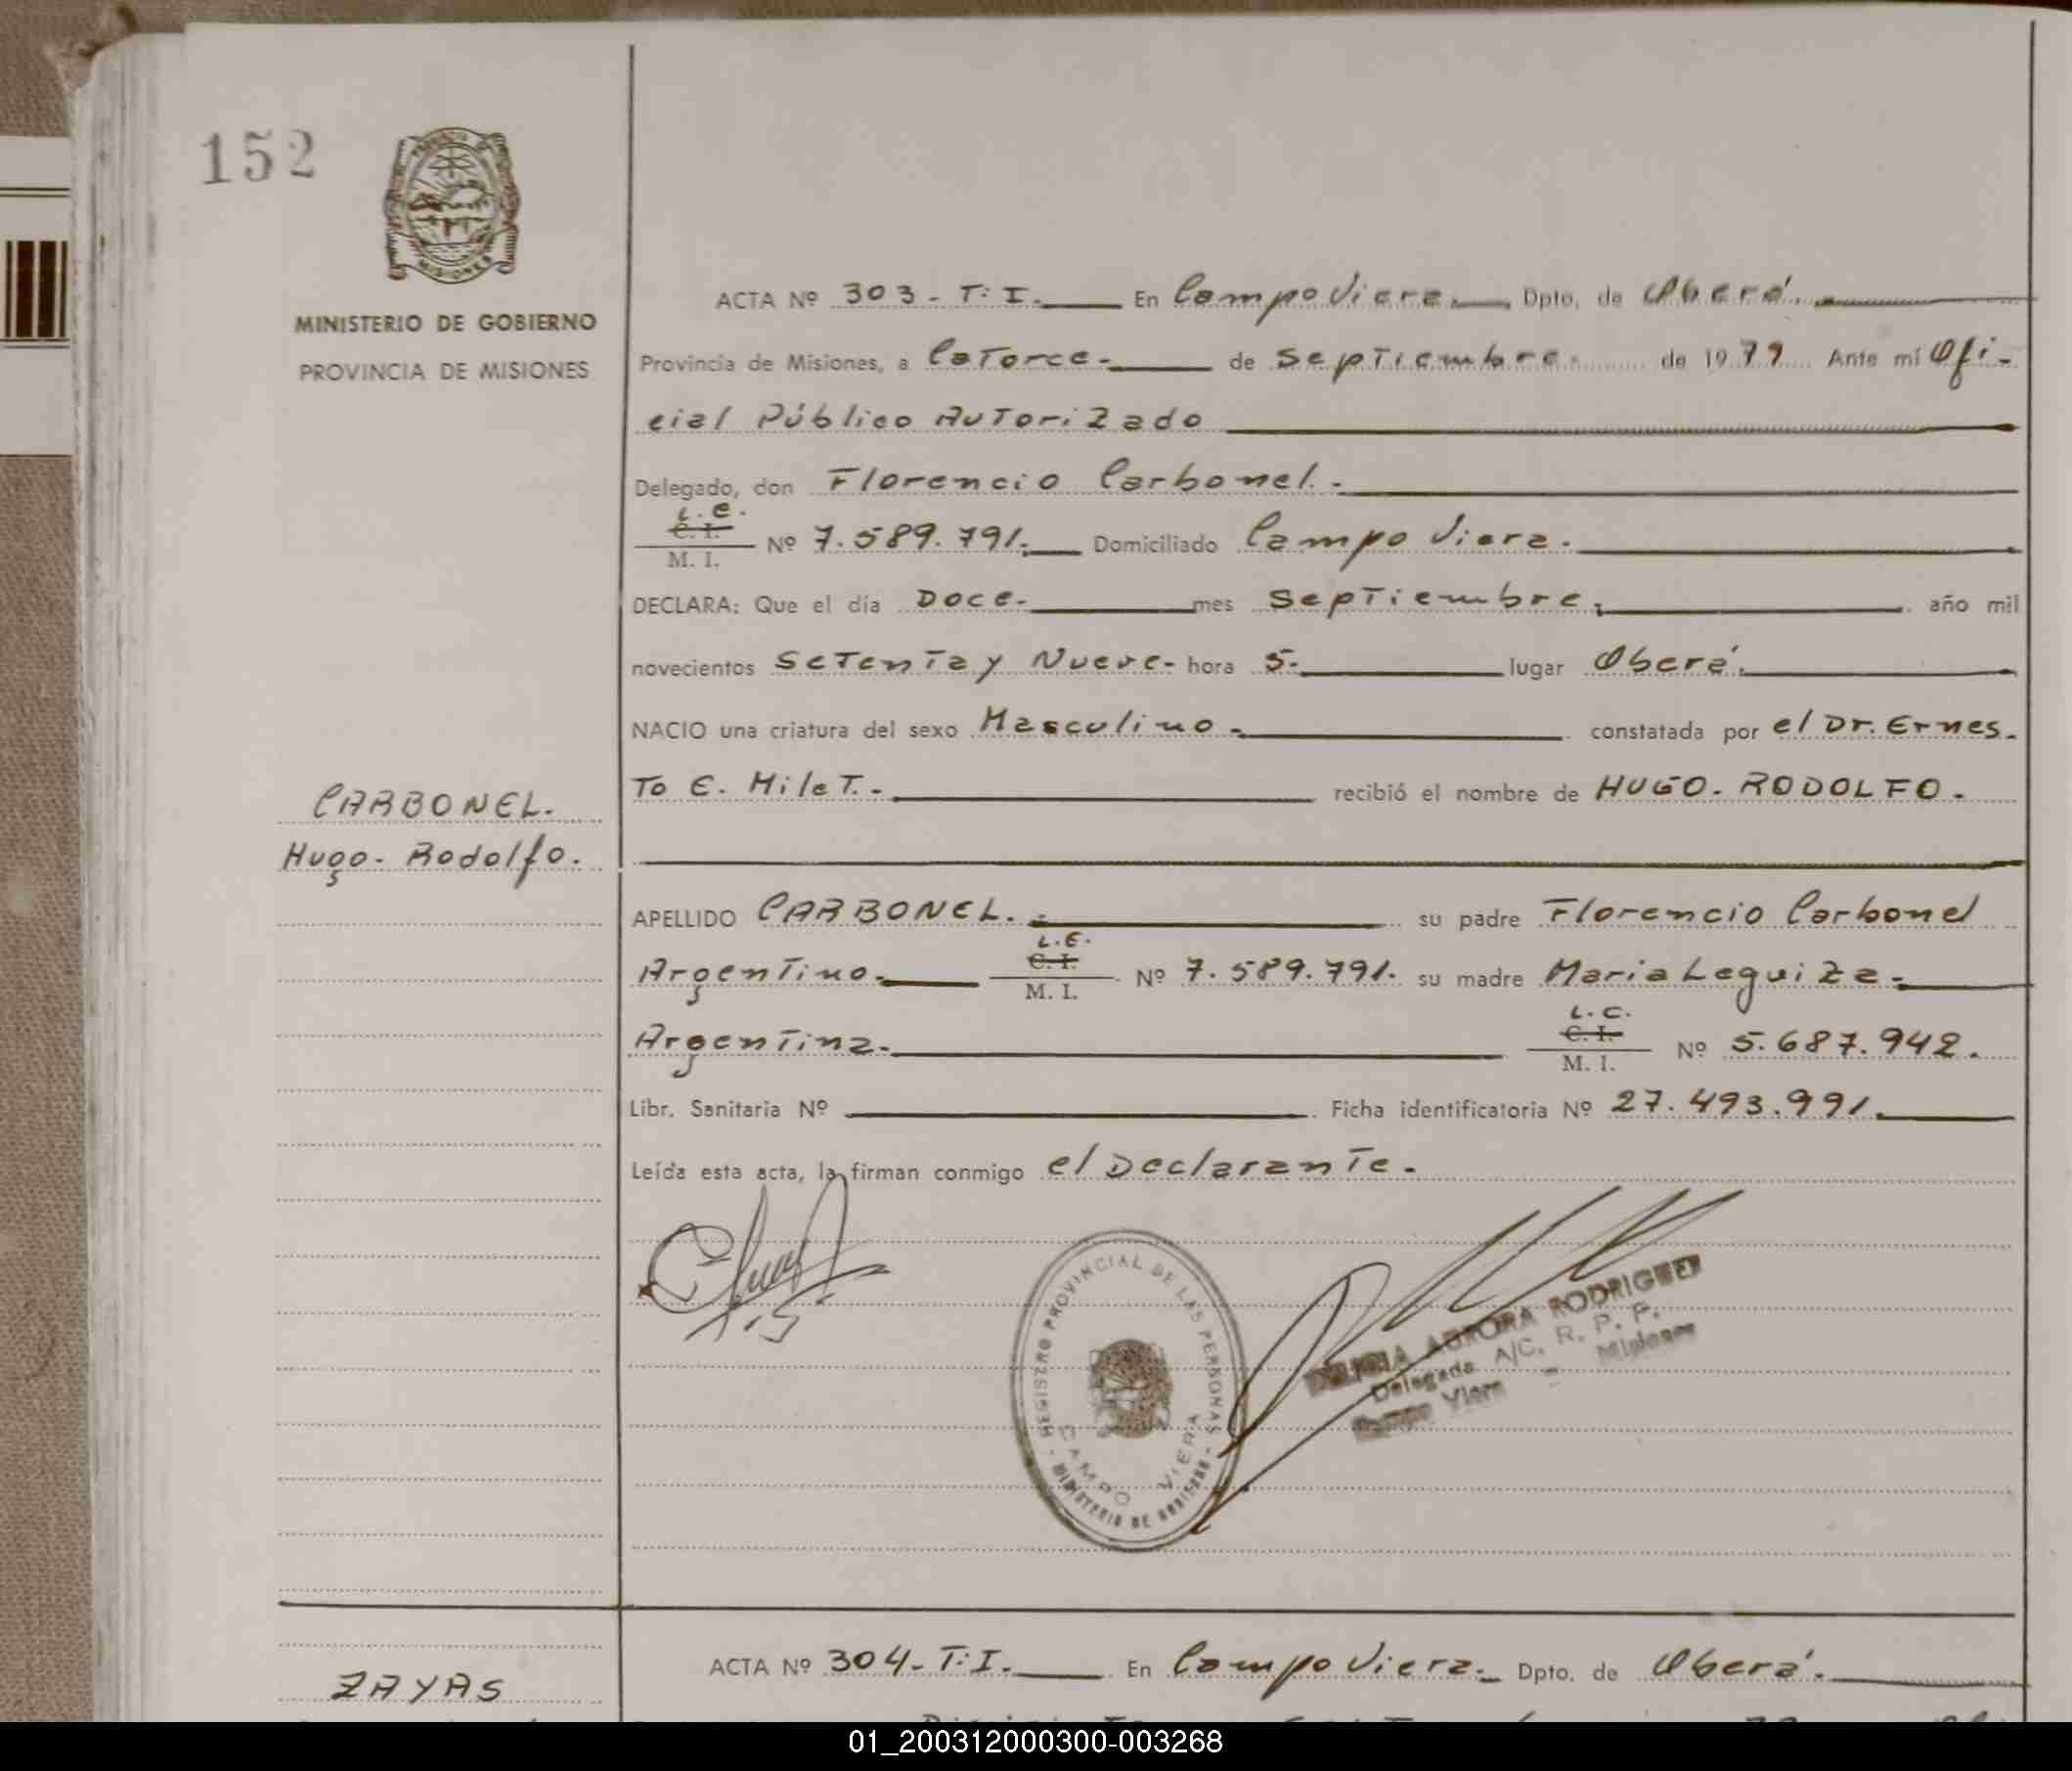 152
MISIONES
MINISTERIO DE GOBIERNO
PROVINCIA DE MISIONES
CARBONEL.
Hugo. Rodolfo.
ACTA Nº 303 - T: I. En Campo Viera. Dpto. de Oberá.
Provincia de Misiones, a Catorce. de Septiembre. de 1979 Ante mí Ofi-
cial Público Autorizado
Delegado, don Florencio Carbonel.
L. E.
C. I.
M. I. Nº 7.589.791. Domiciliado Campo Viera.
DECLARA: Que el día Doce. mes Septiembre. año mil
novecientos Setenta y Nueve- hora 5. lugar Oberá.
NACIO una criatura del sexo Masculino. constatada por el Dr. Ernes-
to E. Milet. recibió el nombre de HUGO. RODOLFO.
APELLIDO CARBONEL. su padre Florencio Carbonel
L.E.
Argentino. C. I. Nº 7.589.791. su madre Maria Leguiza.
M. I.
L. C.
Argentina. C. I. Nº 5.687.942.
M. I.
Libr. Sanitaria Nº Ficha identificatoria Nº 27.493.991.
Leída esta acta, la firman conmigo el Declarante.
REGISTRO PROVINCIAL DE LAS PERSONAS
CAMPO VIERA
MINISTERIO DE GOBIERNO
AURORA RODRIGUEZ
Delegada A/C. R. P. P.
Campo Viera - Misiones
ZAYAS
ACTA Nº 304 - T: I. En Campo Viera. Dpto. de Oberá.
01_200312000300-003268